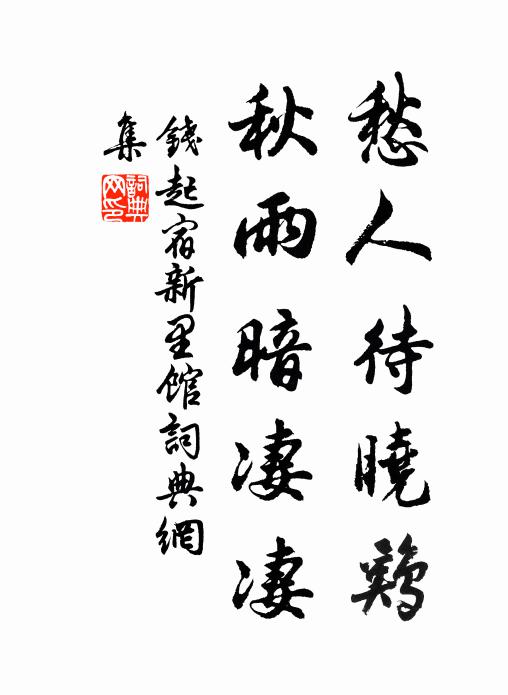 愁人待曉鷄
秋雨暗凄凄
錢起宿新里館詞典網
集
詞典网印